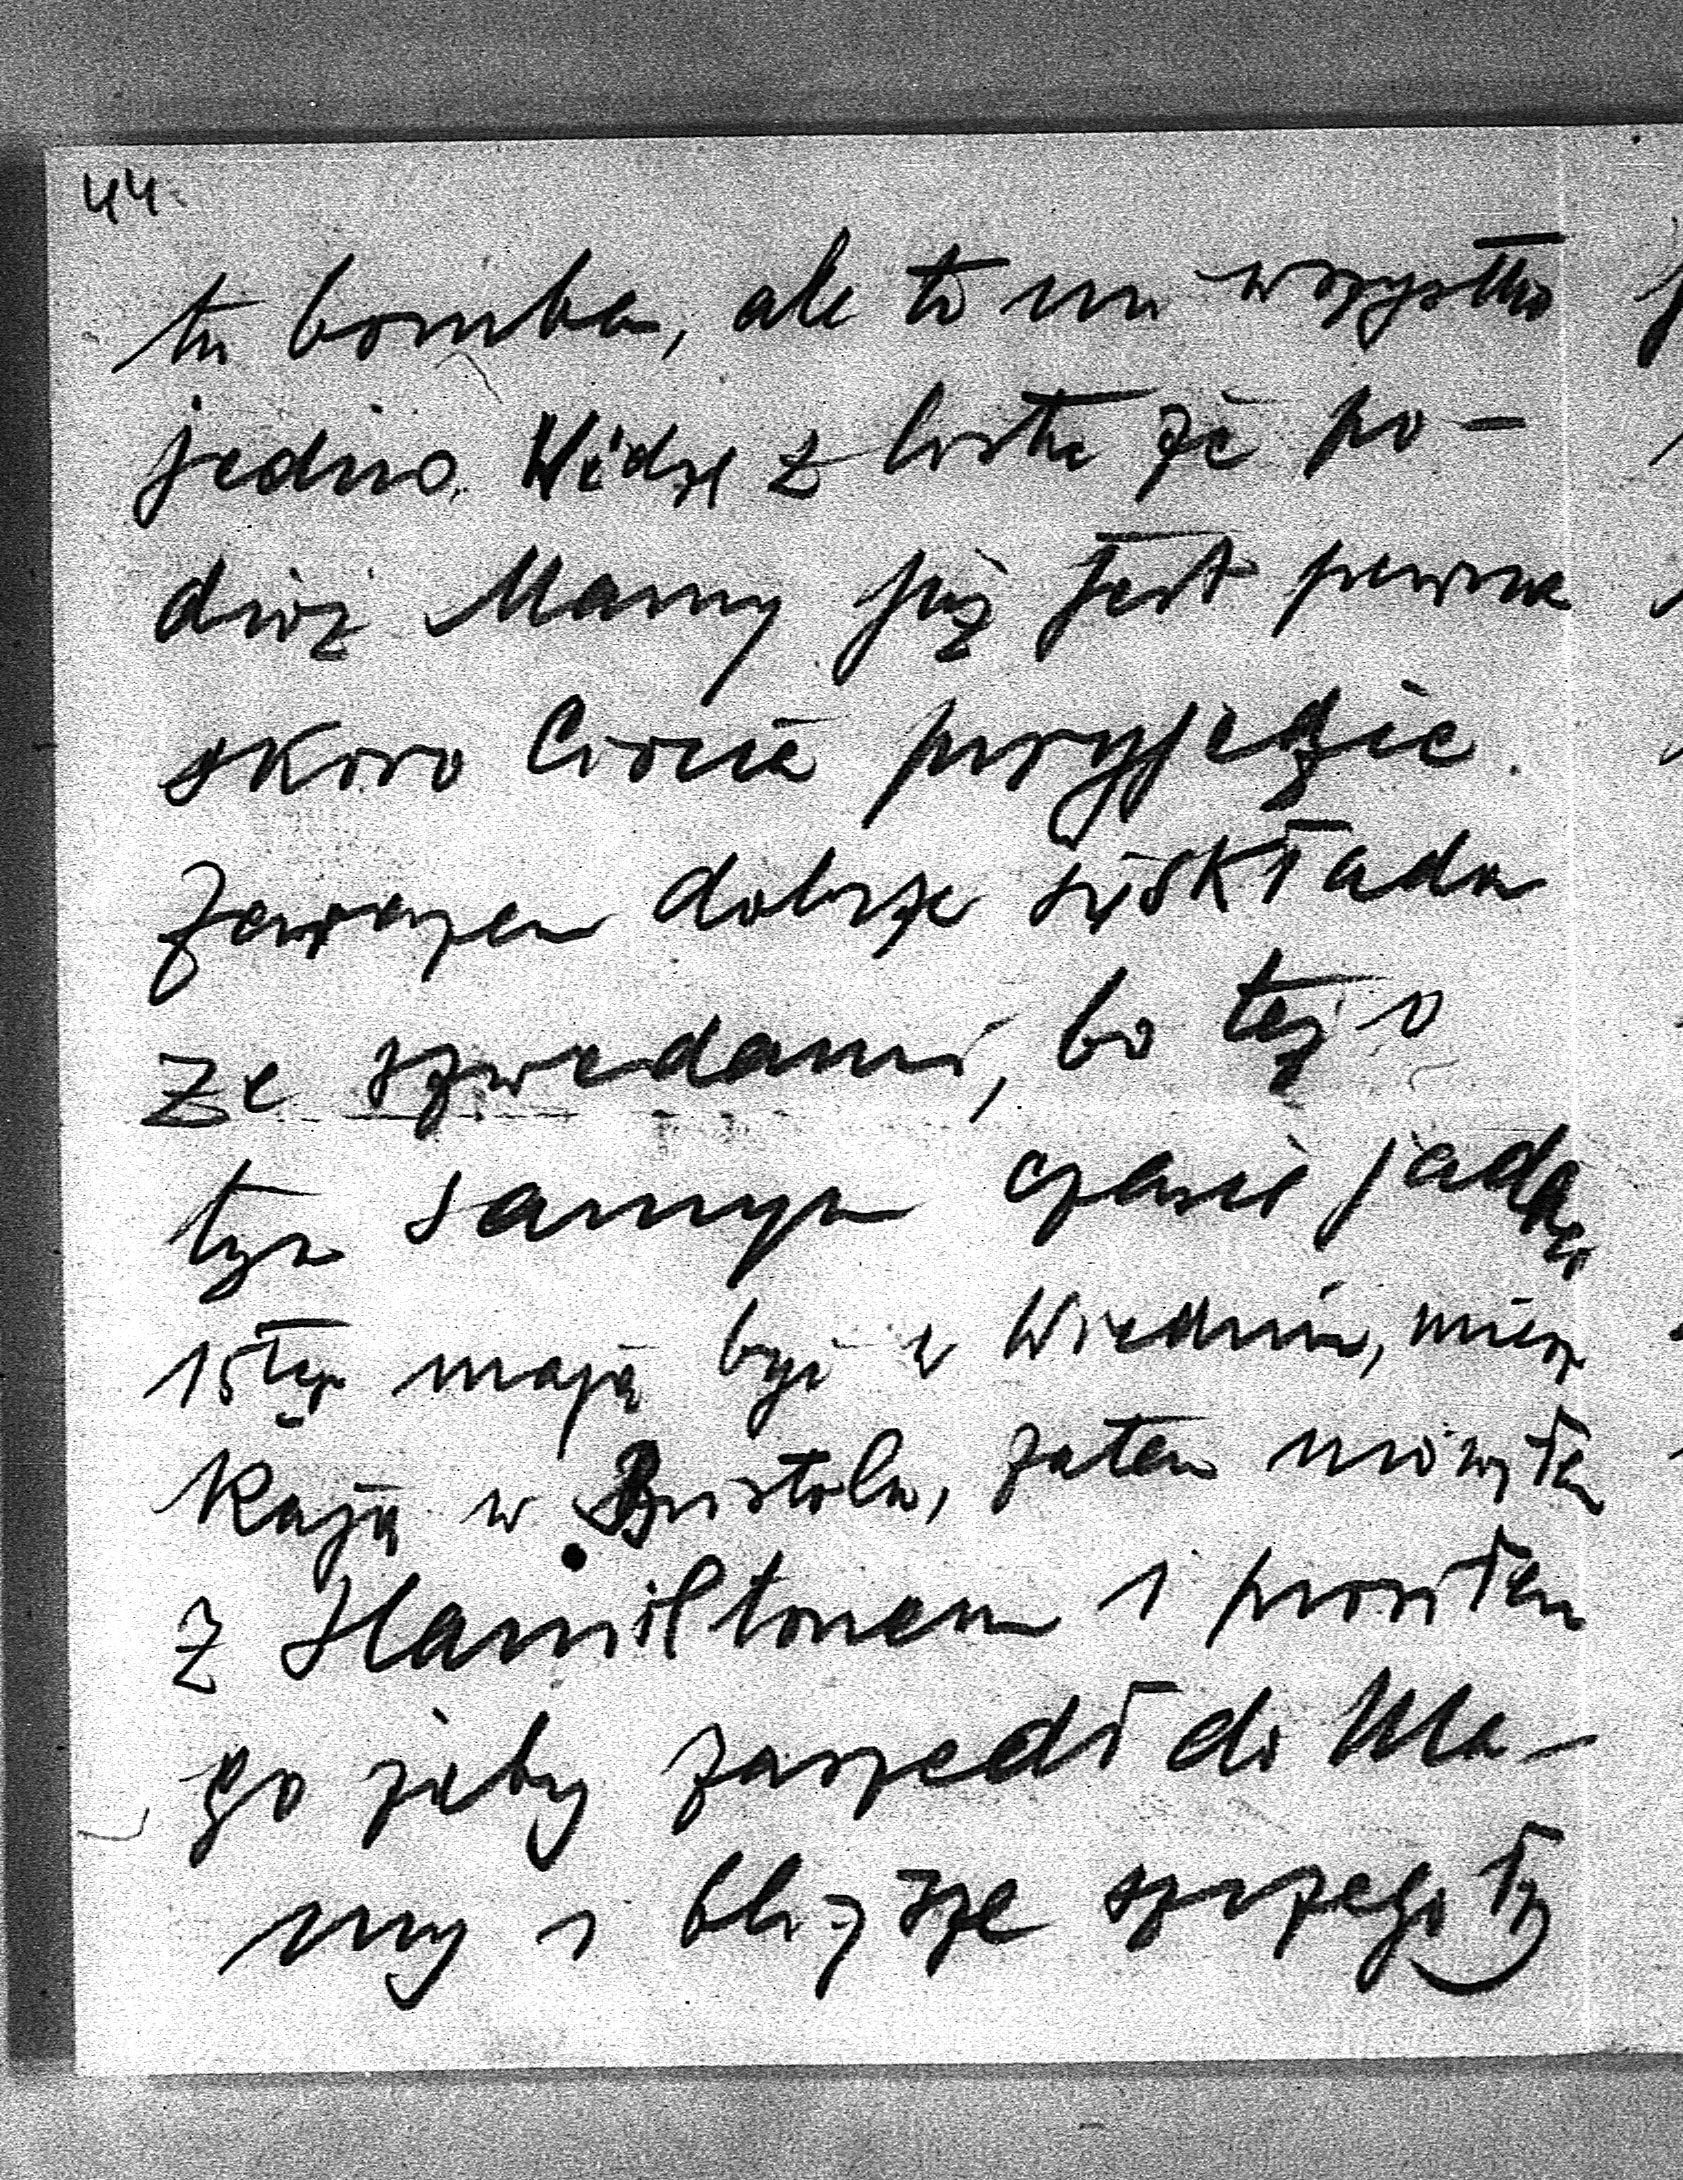 44
tu bomba, ale to mi wszystko
jedno. Widzę z listu że po-
dróż Mamy już jest pewna
skoro Ciocia przyjedzie.
Zarazem dobrze się składa
ze szwedami, bo też w
tym samym czasie jadą
15tego mają być w Wiedniu, miesz
kają w Bristolu, zatem mówiłem
z Hamiltonem i prosiłem
go żeby zaszedł do Ma-
my i bliższe szczegóły